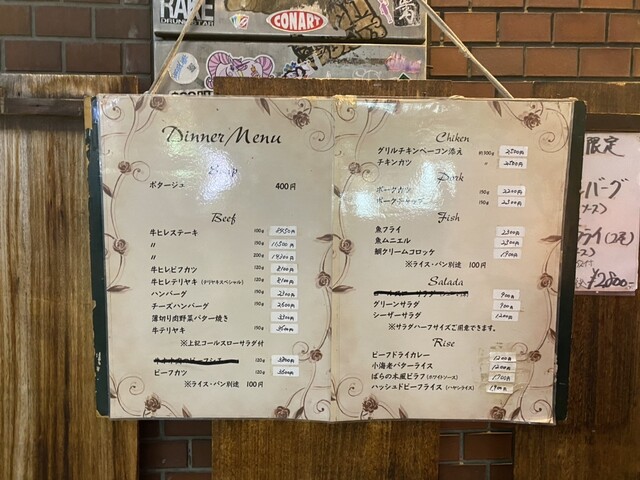 CONART
Dinner Menu
Soup
ポタージュ 400円
Beef
牛ヒレステーキ 100g
〃 150g 11,500円
〃 200g
牛ヒレビフカツ 120g 8100円
牛ヒレテリヤキ(テリヤキスペシャル) 120g 8100円
ハンバーグ 150g
チーズハンバーグ 150g
薄切り肉野菜バター焼き
牛テリヤキ 150g
※上記コールスローサラダ付
120g
ビーフカツ 120g 3500円
※ライス・パン別途 100円
Chiken
グリルチキンベーコン添え 約300g 2500円
チキンカツ 〃 2500円
Pork
ポークカツ 150g 2200円
ポークチャップ 150g 2300円
Fish
魚フライ 2300円
魚ムニエル 2300円
鯛クリームコロッケ 1900円
※ライス・パン別途 100円
Salada
900円
グリーンサラダ 900円
シーザーサラダ 1200円
※サラダハーフサイズご用意できます。
Rise
ビーフドライカレー 1200円
小海老バターライス 1200円
ばらの木風ピラフ(ホワイトソース) 1700円
ハッシュドビーフライス(ハヤシライス) 1900円
限定
バーグ
ライ(2尾)
¥2800-